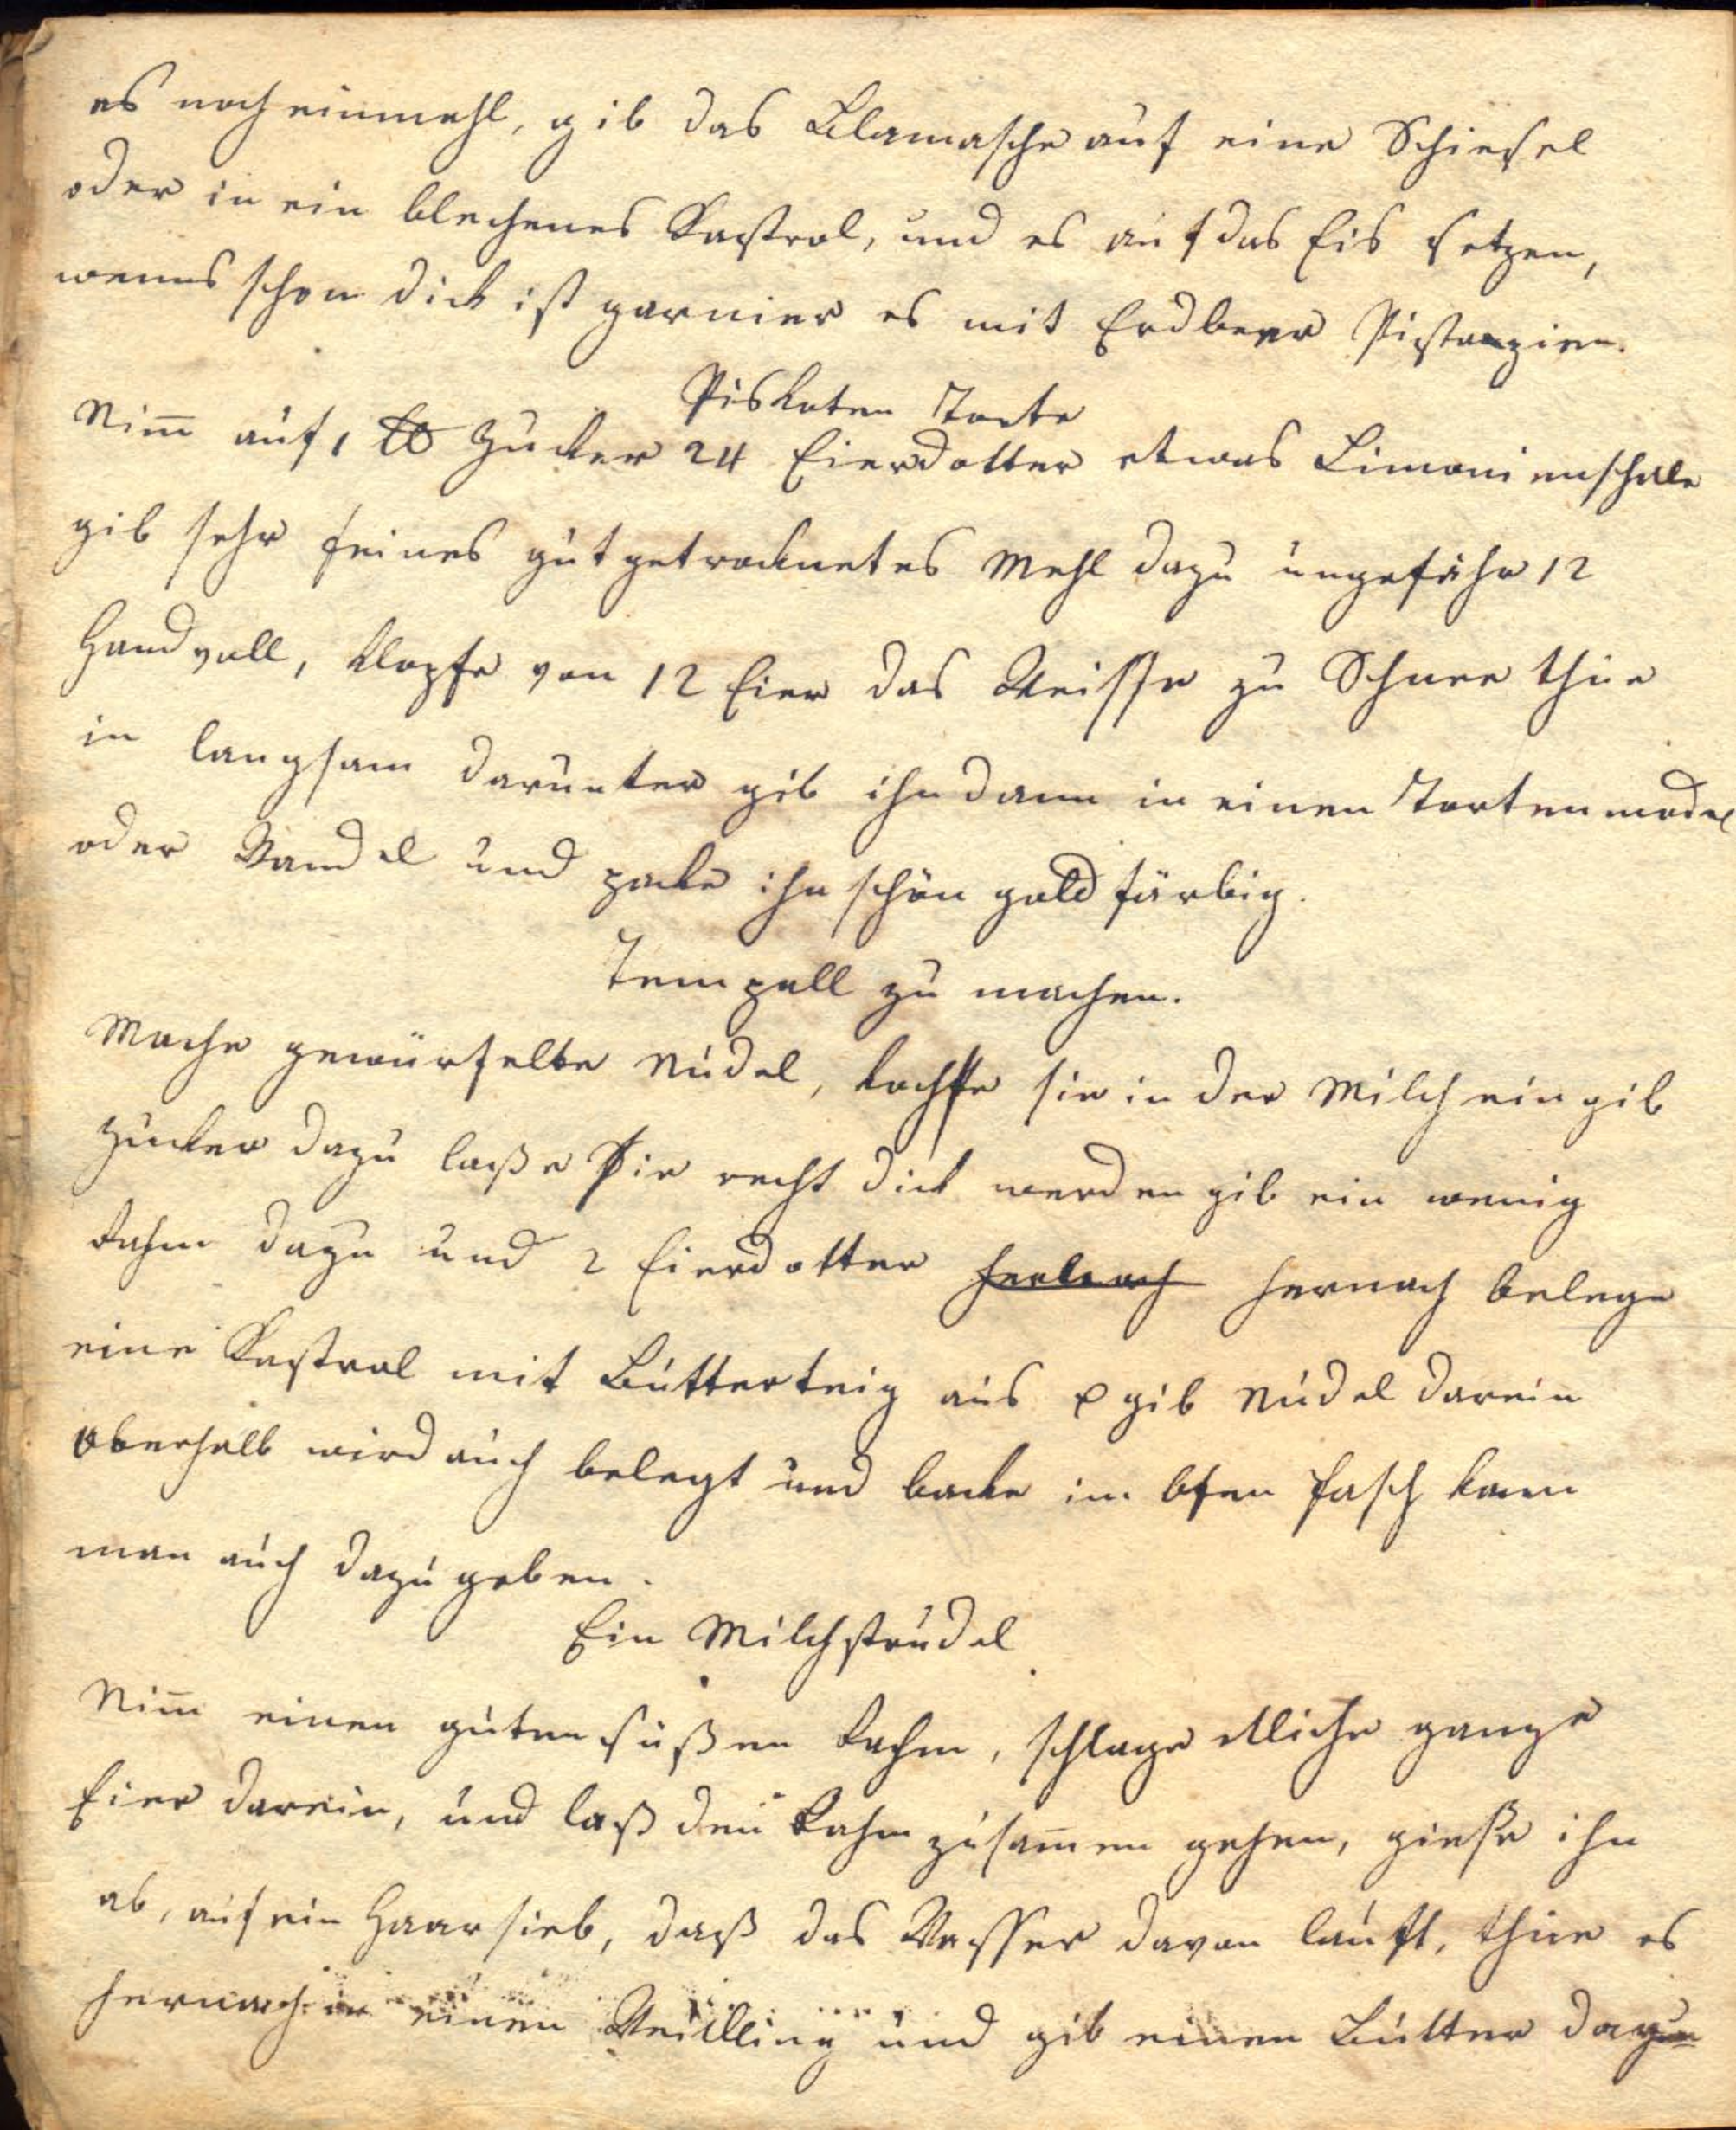 es noch einmahl, gib das Blamasche auf eine Schiesel
oder in ein blechenes Kastrol, und es auf das Eis setzen,
wenns schon dick ist garnier es mit Erdbeer Pistanzien.
Piskoten Torte
Nim̅ auf 1 ℔ Zucker 24 Eierdotter etwas Limonienschale
gib sehr feines gut getrocknetes Mehl dazu ungefähr 12
Handvoll, klopfe von 12 Eier das Weisse zu Schnee thue
in langsam darunter gib ihn dann in einen Tortenmodel
oder Wandel und packe ihn schön goldfärbig.
Tempall zu machen.
Mache gewürfelte Nudel, koche sie in der Milch ein gib
Zucker dazu laße sie recht dick werden gib ein wenig
Rahm dazu und 2 Eierdotter hernach belege
eine Kastrol mit Butterteig aus gib Nudel darein
Oberhalb wird auch belegt und backe im Ofen Fasch kann
man auch dazu geben.
Ein Milchstrudel
Nim̅ einen guten süßen Rahm, schlage etliche ganze
Eier darein, und laß den Rahm zusam̅en gehen, gieße ihn
ab, auf ein Haarsieb, daß das Wasser davon lauft, thue es
hernach in einen Weidling und gib einen Butter dazu